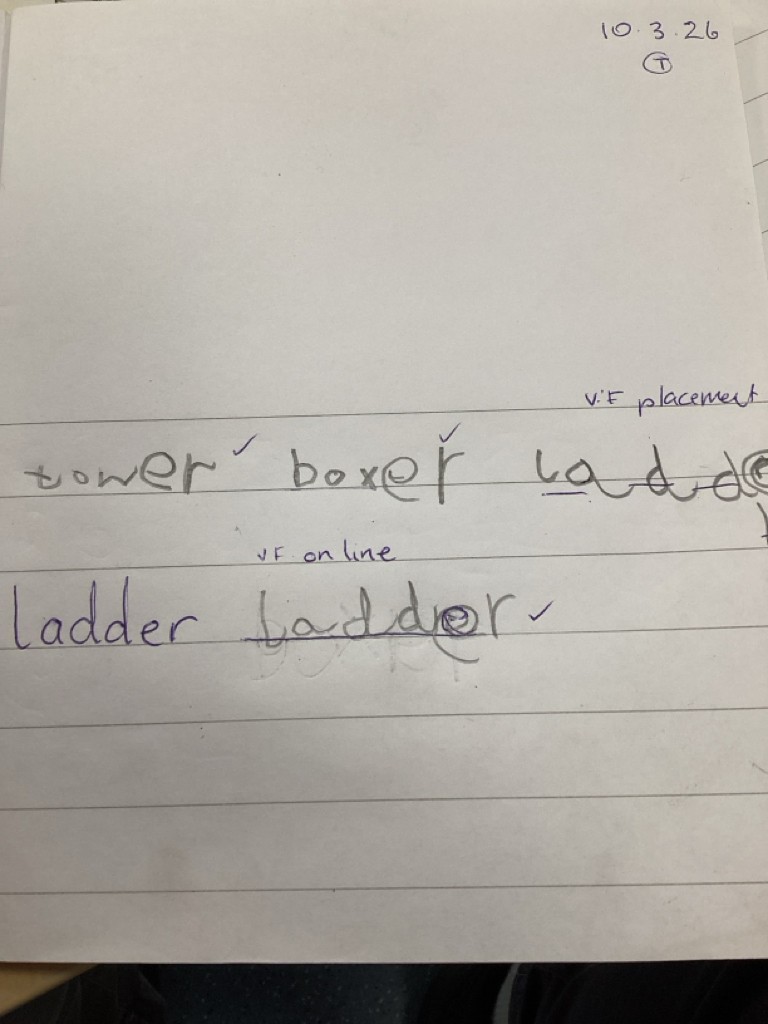 10.3.26
T
V.F placement
tower boxer ladde
VF on line
ladder ladder